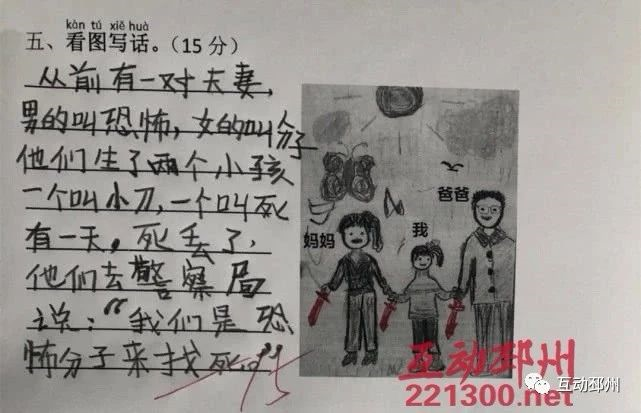 kàn tú xiě huà
五、看图写话。（15分）
从前有一对夫妻，
男的叫恐怖，女的叫分子
他们生了两个小孩
一个叫小刀，一个叫死
有一天，死丢了，
他们去警察局
说：“我们是恐
怖分子来找死。”
-15
爸爸
妈妈
我
互动邳州
221300.net
互动邳州